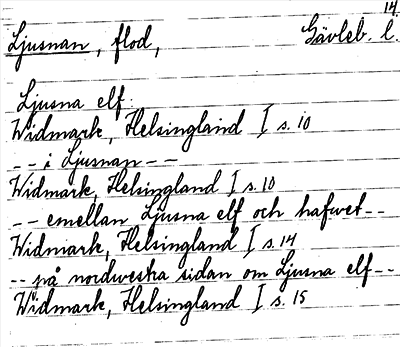 14.
Ljusnan, flod, Gävleb. l.
Ljusna elf.
Widmark, Helsingland I s. 10
-- i Ljusnan --
Widmark, Helsingland I s. 10
-- emellan Ljusna elf och hafwet --
Widmark, Helsingland I s. 14
-- på nordwestra sidan om Ljusna elf --
Widmark, Helsingland I s. 15